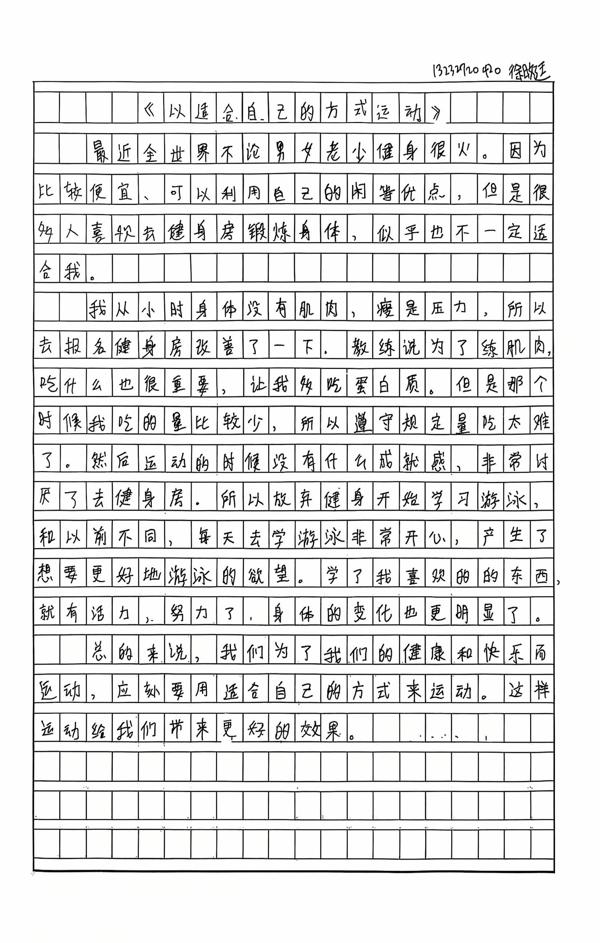 徐
《以适合自己的方式运动》
最近全世界不论男女老少健身很火。因为
比较便宜、可以利用自己的闲等优点，但是很
多人喜欢去健身房锻炼身体，似乎也不一定适
合我。
我从小时身体没有肌肉，瘦是压力，所以
去报名健身房改善了一下．教练说为了练肌肉，
吃什么也很重要，让我多吃蛋白质。但是那个
时候我吃的量比较少，所以遵守规定量吃太难
了。然后运动的时候没有什么成就感，非常讨
厌了去健身房．所以放弃健身开始学习游泳，
和以前不同，每天去学游泳非常开心，产生了
想要更好地游泳的欲望。学了我喜欢的的东西，
就有活力，努力了．身体的变化也更明显了。
总的来说，我们为了我们的健康和快乐而
运动，应该要用适合自己的方式来运动。这样
运动给我们带来更好的效果。